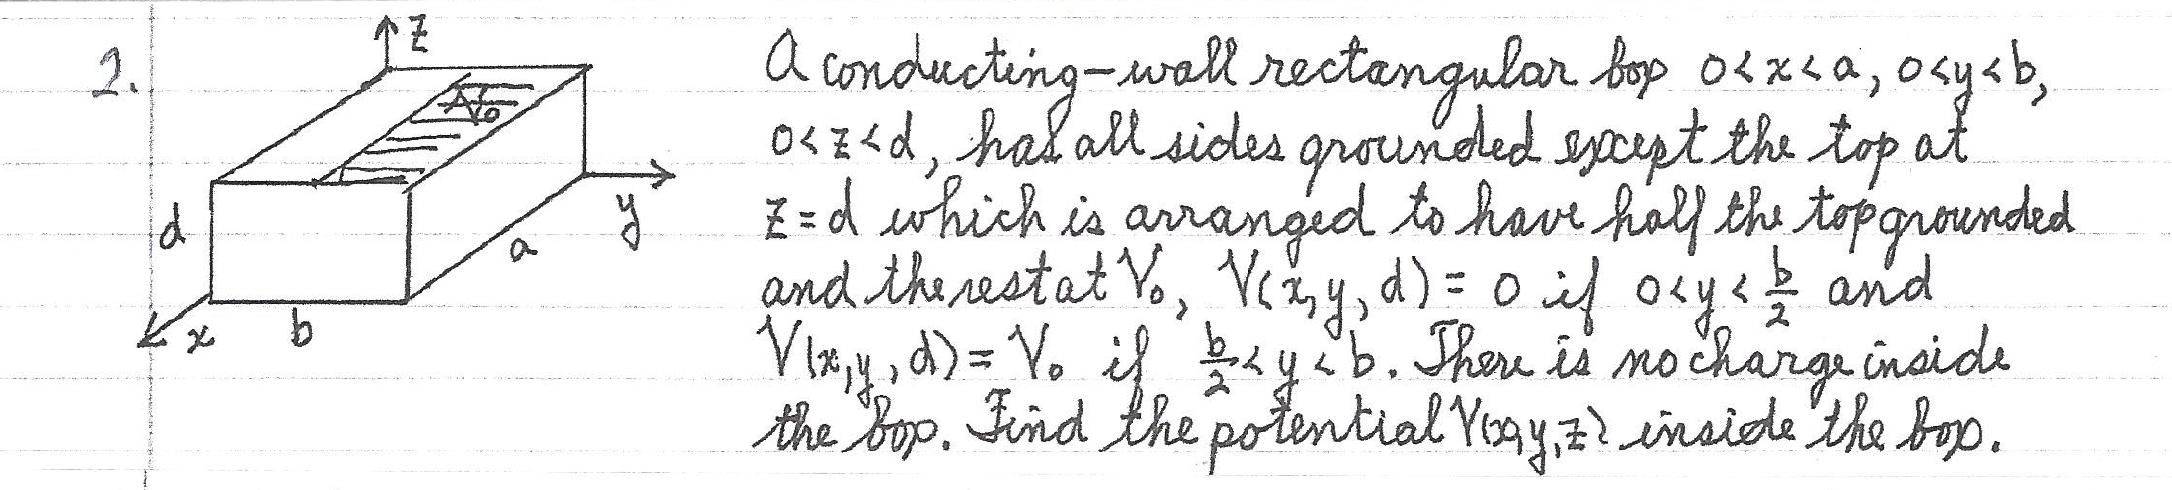 2.
z
V₀
d
x
b
a
y
A conducting-wall rectangular box 0<x<a, 0<y<b,
0<z<d, has all sides grounded except the top at
z=d which is arranged to have half the top grounded
and the rest at V₀, V(x,y,d)=0 if 0<y<b/2 and
V(x,y,d)=V₀ if b/2<y<b. There is no charge inside
the box. Find the potential V(x,y,z) inside the box.